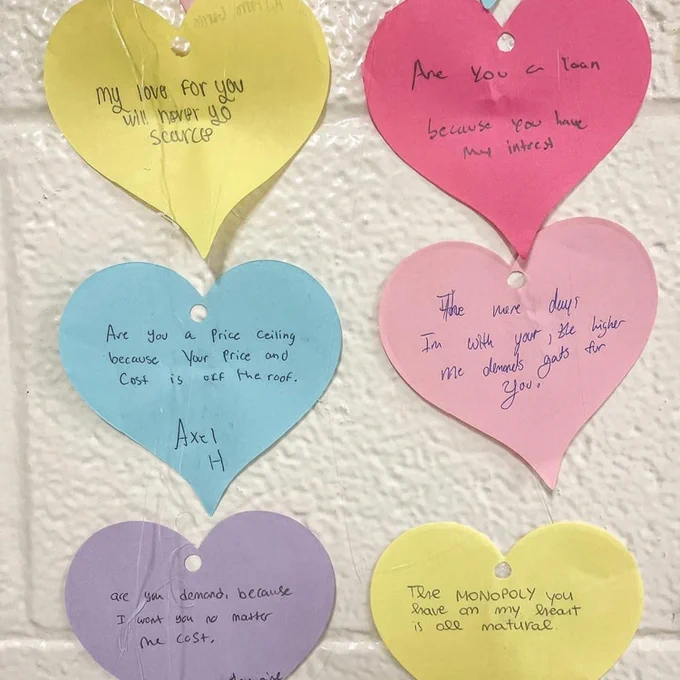 My love for you
will never go
scarce
Are you a loan
because you have
my intrest
Are you a Price ceiling
because Your Price and
Cost is off the roof.
Axel
H
The more days
Im with your, the higher
me demands gats for
You.
are you demand, because
I want you no matter
the cost.
The MONOPOLY you
have on my heart
is all natural.